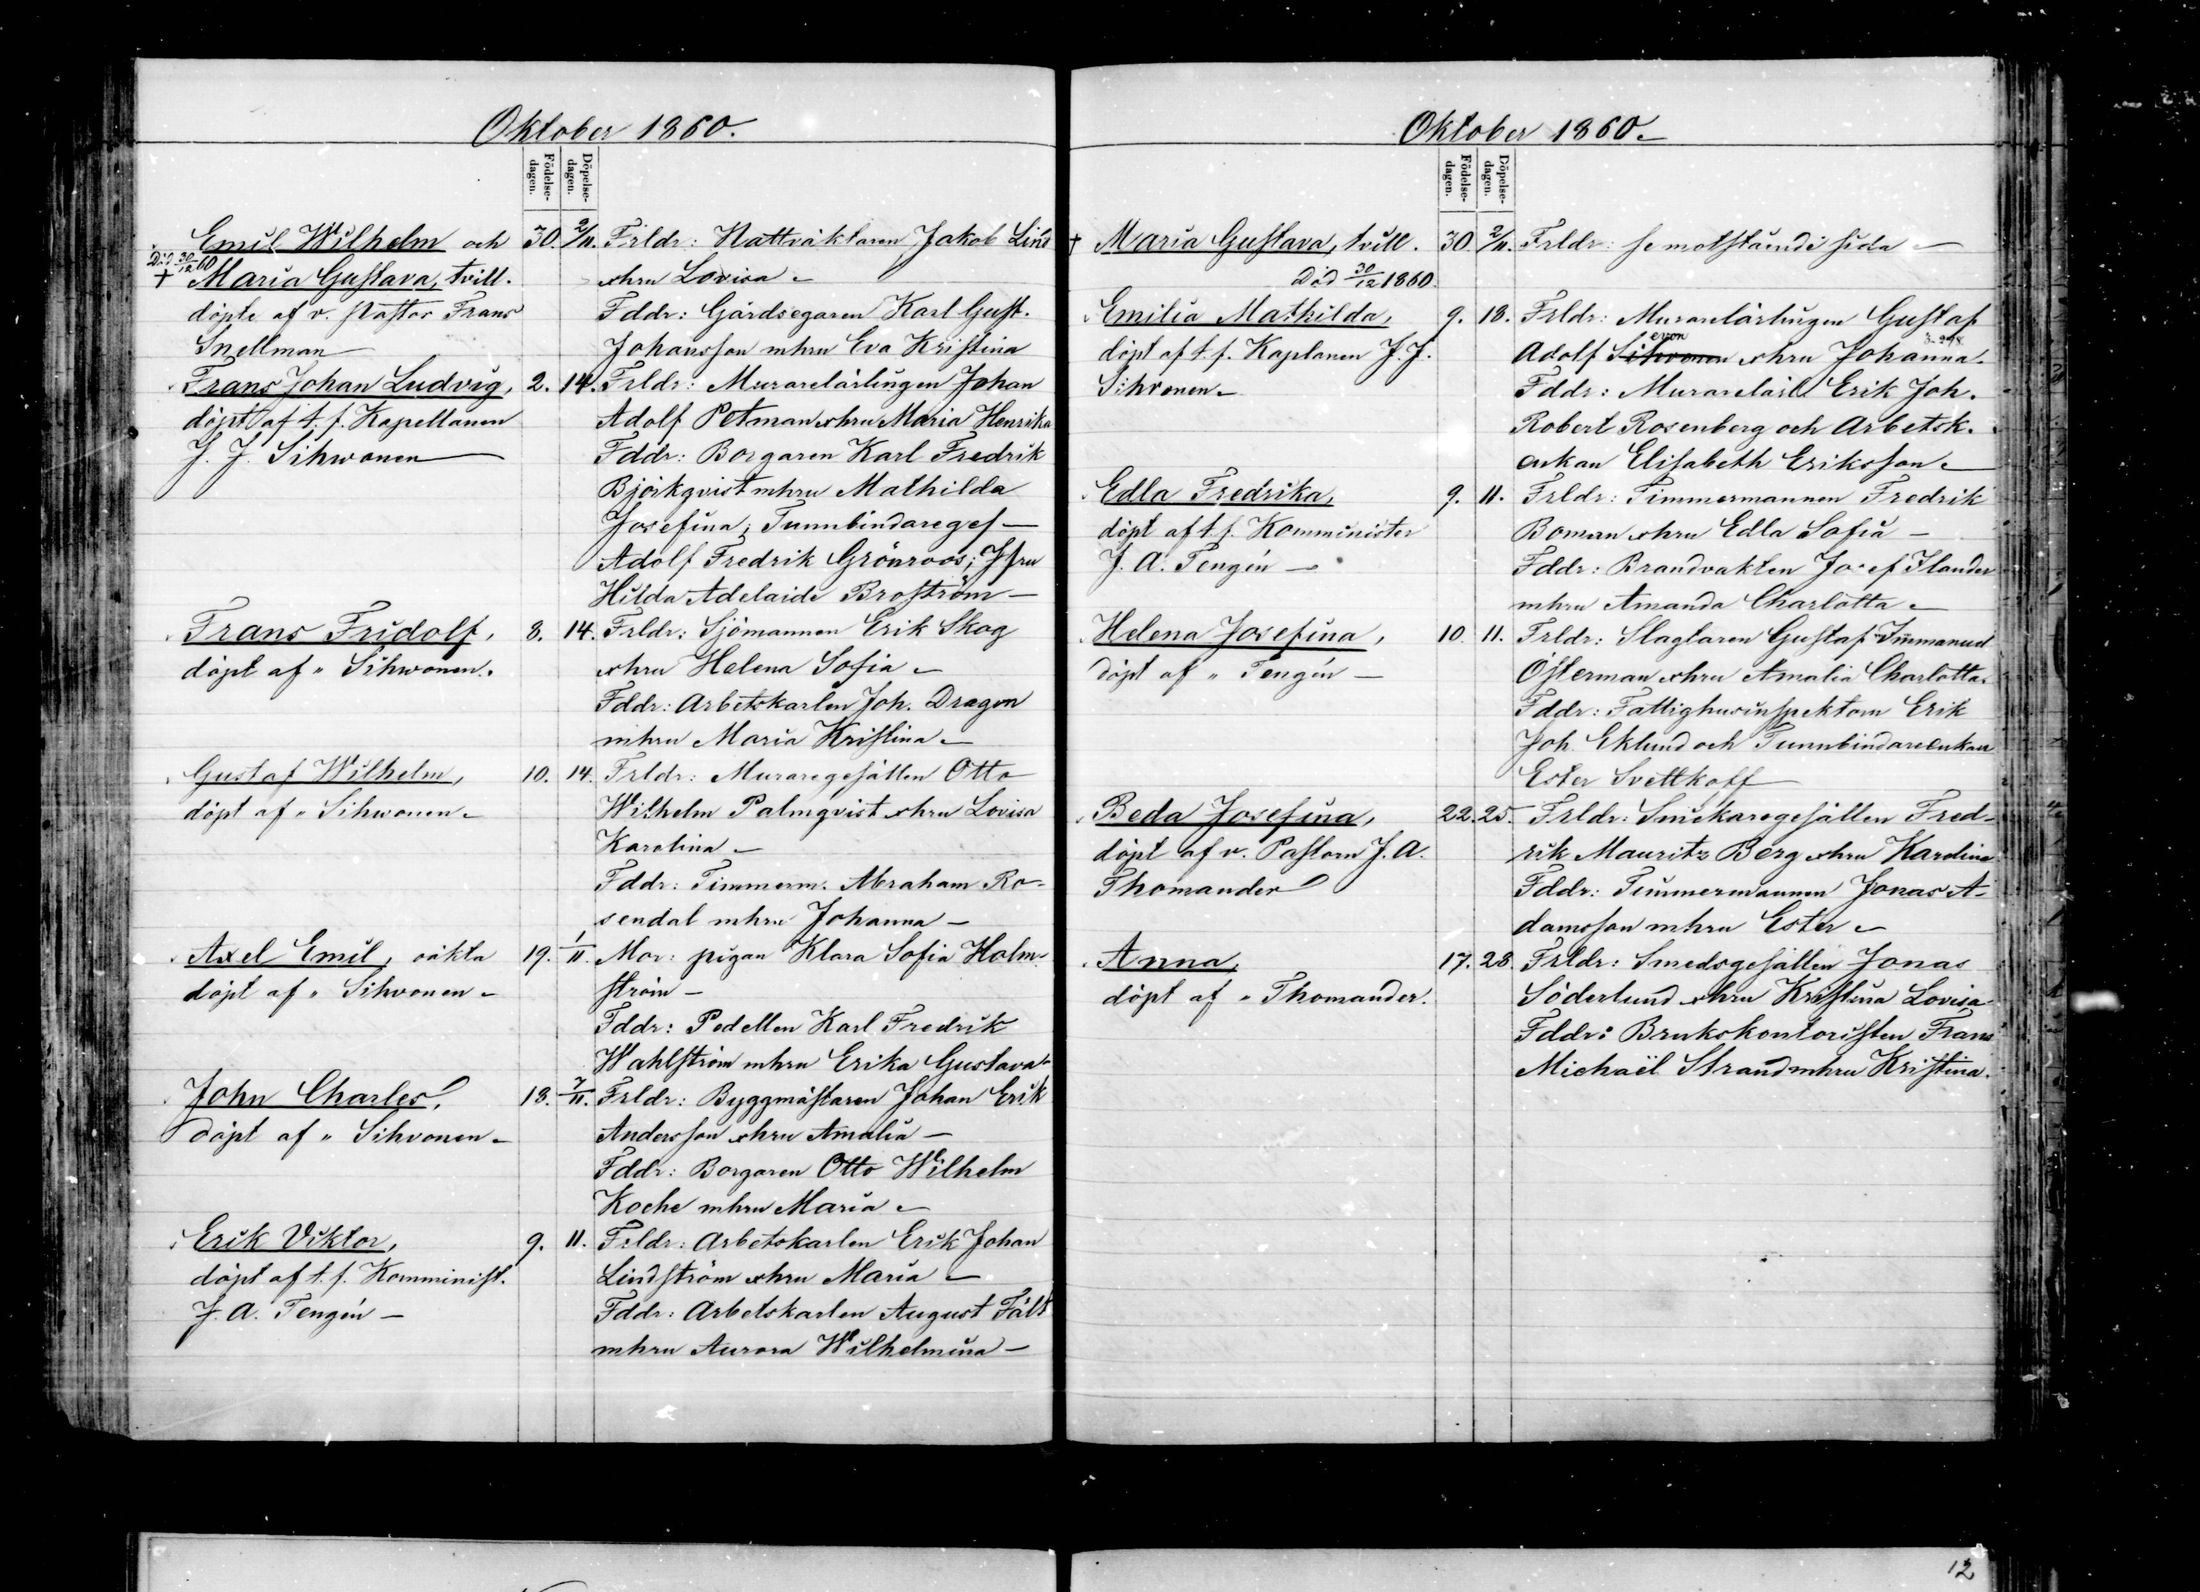 Oktober 1860.
Födelse-dagen.
Döpelse-dagen.
Emil Wilhelm och 30. 2/11. Frldr: Nattväktaren Jakob Lind
Död 30/12 60
+ Maria Gustava, tvill. o. hru Lovisa –
döpte af v. Pastor Frans Fddr: Gårdsegaren Karl Gust.
Snellman – Johansson m hru Eva Kristina
Frans Johan Ludvig, 2. 14. Frldr: Murarelärlingen Johan
döpt af t. f. Kapellanen Adolf Petman o hru Maria Henrika
J. J. Sihwonen – Fddr: Borgaren Karl Fredrik
Björkqvist m hru Mathilda
Josefina; Tunnbindareges–
Adolf Fredrik Grönroos; Jfru
Hilda Adelaide Broström –
Frans Fridolf, 8. 14. Frldr: Sjömannen Erik Skog
döpt af " Sihwonen. o hru Helena Sofia –
Fddr: Arbetskarlen Joh. Dragon
m hru Maria Kristina –
Gustaf Wilhelm, 10. 14. Frldr: Muraregesällen Otto
döpt af " Sihwonen – Wilhelm Palmqvist o hru Lovisa
Karolina –
Fddr: Timmerm. Abraham Ro-
sendal m hru Johanna –
Axel Emil, oäkta 19. 1/11. Mor: pigan Klara Sofia Holm-
döpt af " Sihvonen – ström –
Fddr: Pedellen Karl Fredrik
Wahlström m hru Erika Gustava –
John Charles, 18. 7/11. Frldr: Byggmästaren Johan Erik
döpt af " Sihvonen – Andersson o hru Amalia –
Fddr: Borgaren Otto Wilhelm
Koche m hru Maria –
Erik Viktor, 9. 11. Frldr: Arbetskarlen Erik Johan
döpt af t. f. Komminist. Lindström o hru Maria –
J. A. Tengén – Fddr: Arbetskarlen August Fält
m hru Aurora Wilhelmina –
Oktober 1860.
Födelse-dagen.
Döpelse-dagen.
+ Maria Gustava, tvill. 30. 2/11. Frldr: se motstående sida –
Död 30/12 1860.
Emilia Mathilda, 9. 18. Frldr: Murarelärlingen Gustaf
döpt af t. f. Kaplanen J. J. Adolf Sihvonen o hru Johanna.
Sihvonen – Fddr: Murarelärl Erik Joh.
Robert Rosenberg och Arbetsk.
enkan Elisabeth Eriksson –
Edla Fredrika, 9. 11. Frldr: Timmermannen Fredrik
döpt af t. f. Komminister Boman o hru Edla Sofia –
J. A. Tengén – Fddr: Brandvakten Josef Ilander
m hru Amanda Charlotta –
Helena Josefina, 10. 11. Frldr: Slagtaren Gustaf Immanuel
döpt af " Tengén – Österman o hru Amalia Charlotta.
Fddr: Fattighusinspektorn Erik
Joh. Eklund och Tunnbindareenkan
Ester Svettkoff
Beda Josefina, 22. 25. Frldr: Snickaregesällen Fred-
döpt af v. Pastorn J. A. rik Mauritz Berg o hru Karolina
Thomander Fddr: Timmermannen Jonas A-
damsson m hru Ester –
Anna, 17. 28. Frldr: Smedsgesällen Jonas
döpt af " Thomander. Söderlund o hru Kristina Lovisa
Fddr: Brukskontoristen Frans
Michaël Strand m hru Kristina.
12